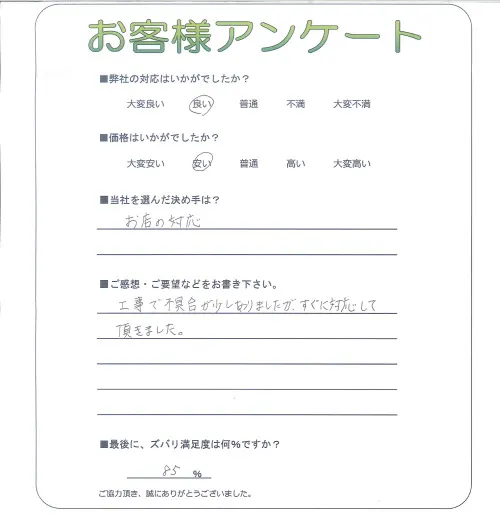 お客様アンケート
■弊社の対応はいかがでしたか？
大変良い 良い 普通 不満 大変不満
■価格はいかがでしたか？
大変安い 安い 普通 高い 大変高い
■当社を選んだ決め手は？
お店の対応
■ご感想・ご要望などをお書き下さい。
工事で不具合が少しありましたが、すぐに対応して
頂きました。
■最後に、ズバリ満足度は何%ですか？
85 %
ご協力頂き、誠にありがとうございました。